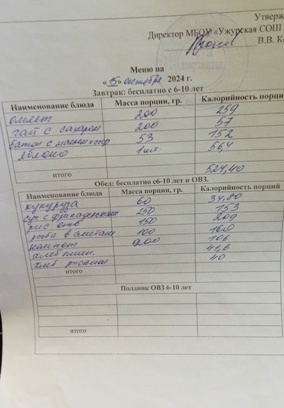 Утверж
Директор МБОУ «Ужурская СОШ
В.В. К
Меню на
октября 2024 г.
Завтрак: бесплатно с 6-10 лет
Наименование блюда Масса порции, гр. Калорийность порции
омлет 200 259
чай с сахаром 200 57
батон с маслом 53 152
яблоко 1 шт 56,4
итого 524,40
Обед: бесплатно с6-10 лет и ОВЗ.
Наименование блюда Масса порции, гр. Калорийность порций
кукуруза 60 34,80
суп с 250 153
рис отв 150 209
рыба в сметане 100 160
напиток 200
хлеб пшен. 41,6
хлеб ржаной 40
итого
Полдник ОВЗ 6-10 лет
итого